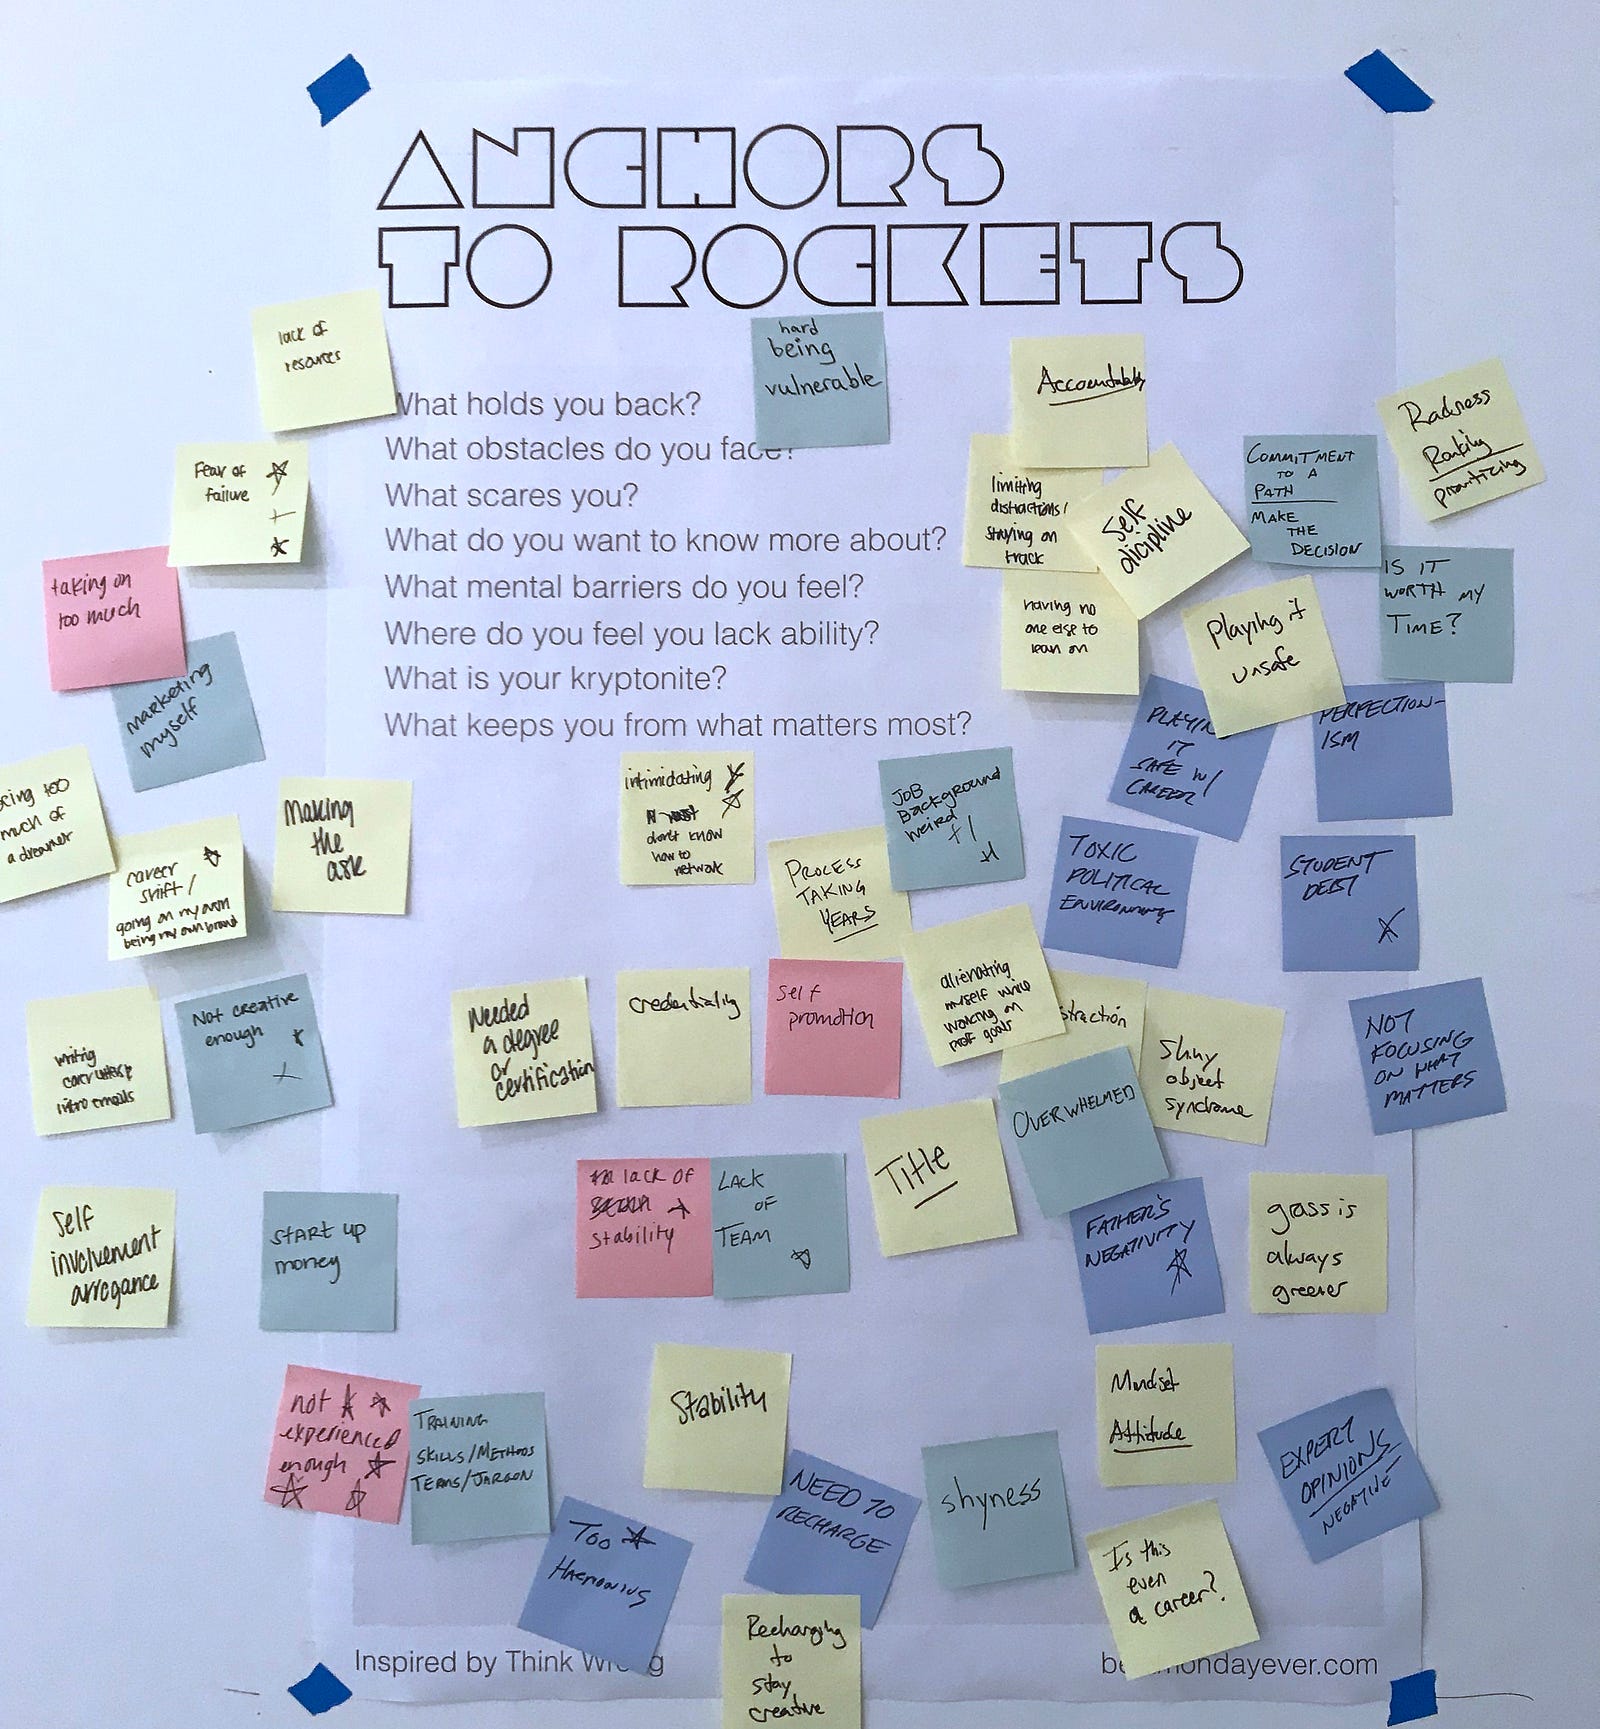 ANCHORS
TO ROCKETS
lack of
resources
What holds you back?
What obstacles do you face?
What scares you?
What do you want to know more about?
What mental barriers do you feel?
Where do you feel you lack ability?
What is your kryptonite?
What keeps you from what matters most?
hard
being
vulnerable
Accountability
limiting
distractions/
staying on
track
Self
dicipline
COMMITMENT
TO A
PATH
MAKE
THE
DECISION
Ranking
prioritizing
Fear of
failure
taking on
too much
marketing
myself
having no
one else to
lean on
Playing it
unsafe
IS IT
WORTH MY
TIME?
PLAYIN
IT
SAFE W/
CAREER
PERFECTION-
ISM
much of
a dreamer
career
shift/
going on my own
being my own brand
Making
the
ask
intimidating
don't know
how to
network
PROCESS
TAKING
YEARS
JOB
Background
weird
TOXIC
POLITICAL
ENVIRONMENT
STUDENT
DEBT
writing
cover letters
intro emails
Not creative
enough
Needed
a degree
or
certification
credentialing
self
promotion
alienating
myself while
working on
prof goals
straction
Shiny
object
syndrome
OVERWHELMED
NOT
FOCUSING
ON WHAT
MATTERS
Self
involvement
arrogance
START UP
money
lack of
stability
LACK
OF
TEAM
Title
FATHER'S
NEGATIVITY
grass is
always
greener
not
experienced
enough
TRAINING
SKILLS/METHODS
TERMS/JARGON
Stability
Mindset
Attitude
TOO
HARMONIUS
NEED TO
RECHARGE
shyness
EXPERT
OPINIONS
NEGATIVE
Is this
even
a career?
Recharging
to
stay
creative
Inspired by Think Wrong
be mondayever.com